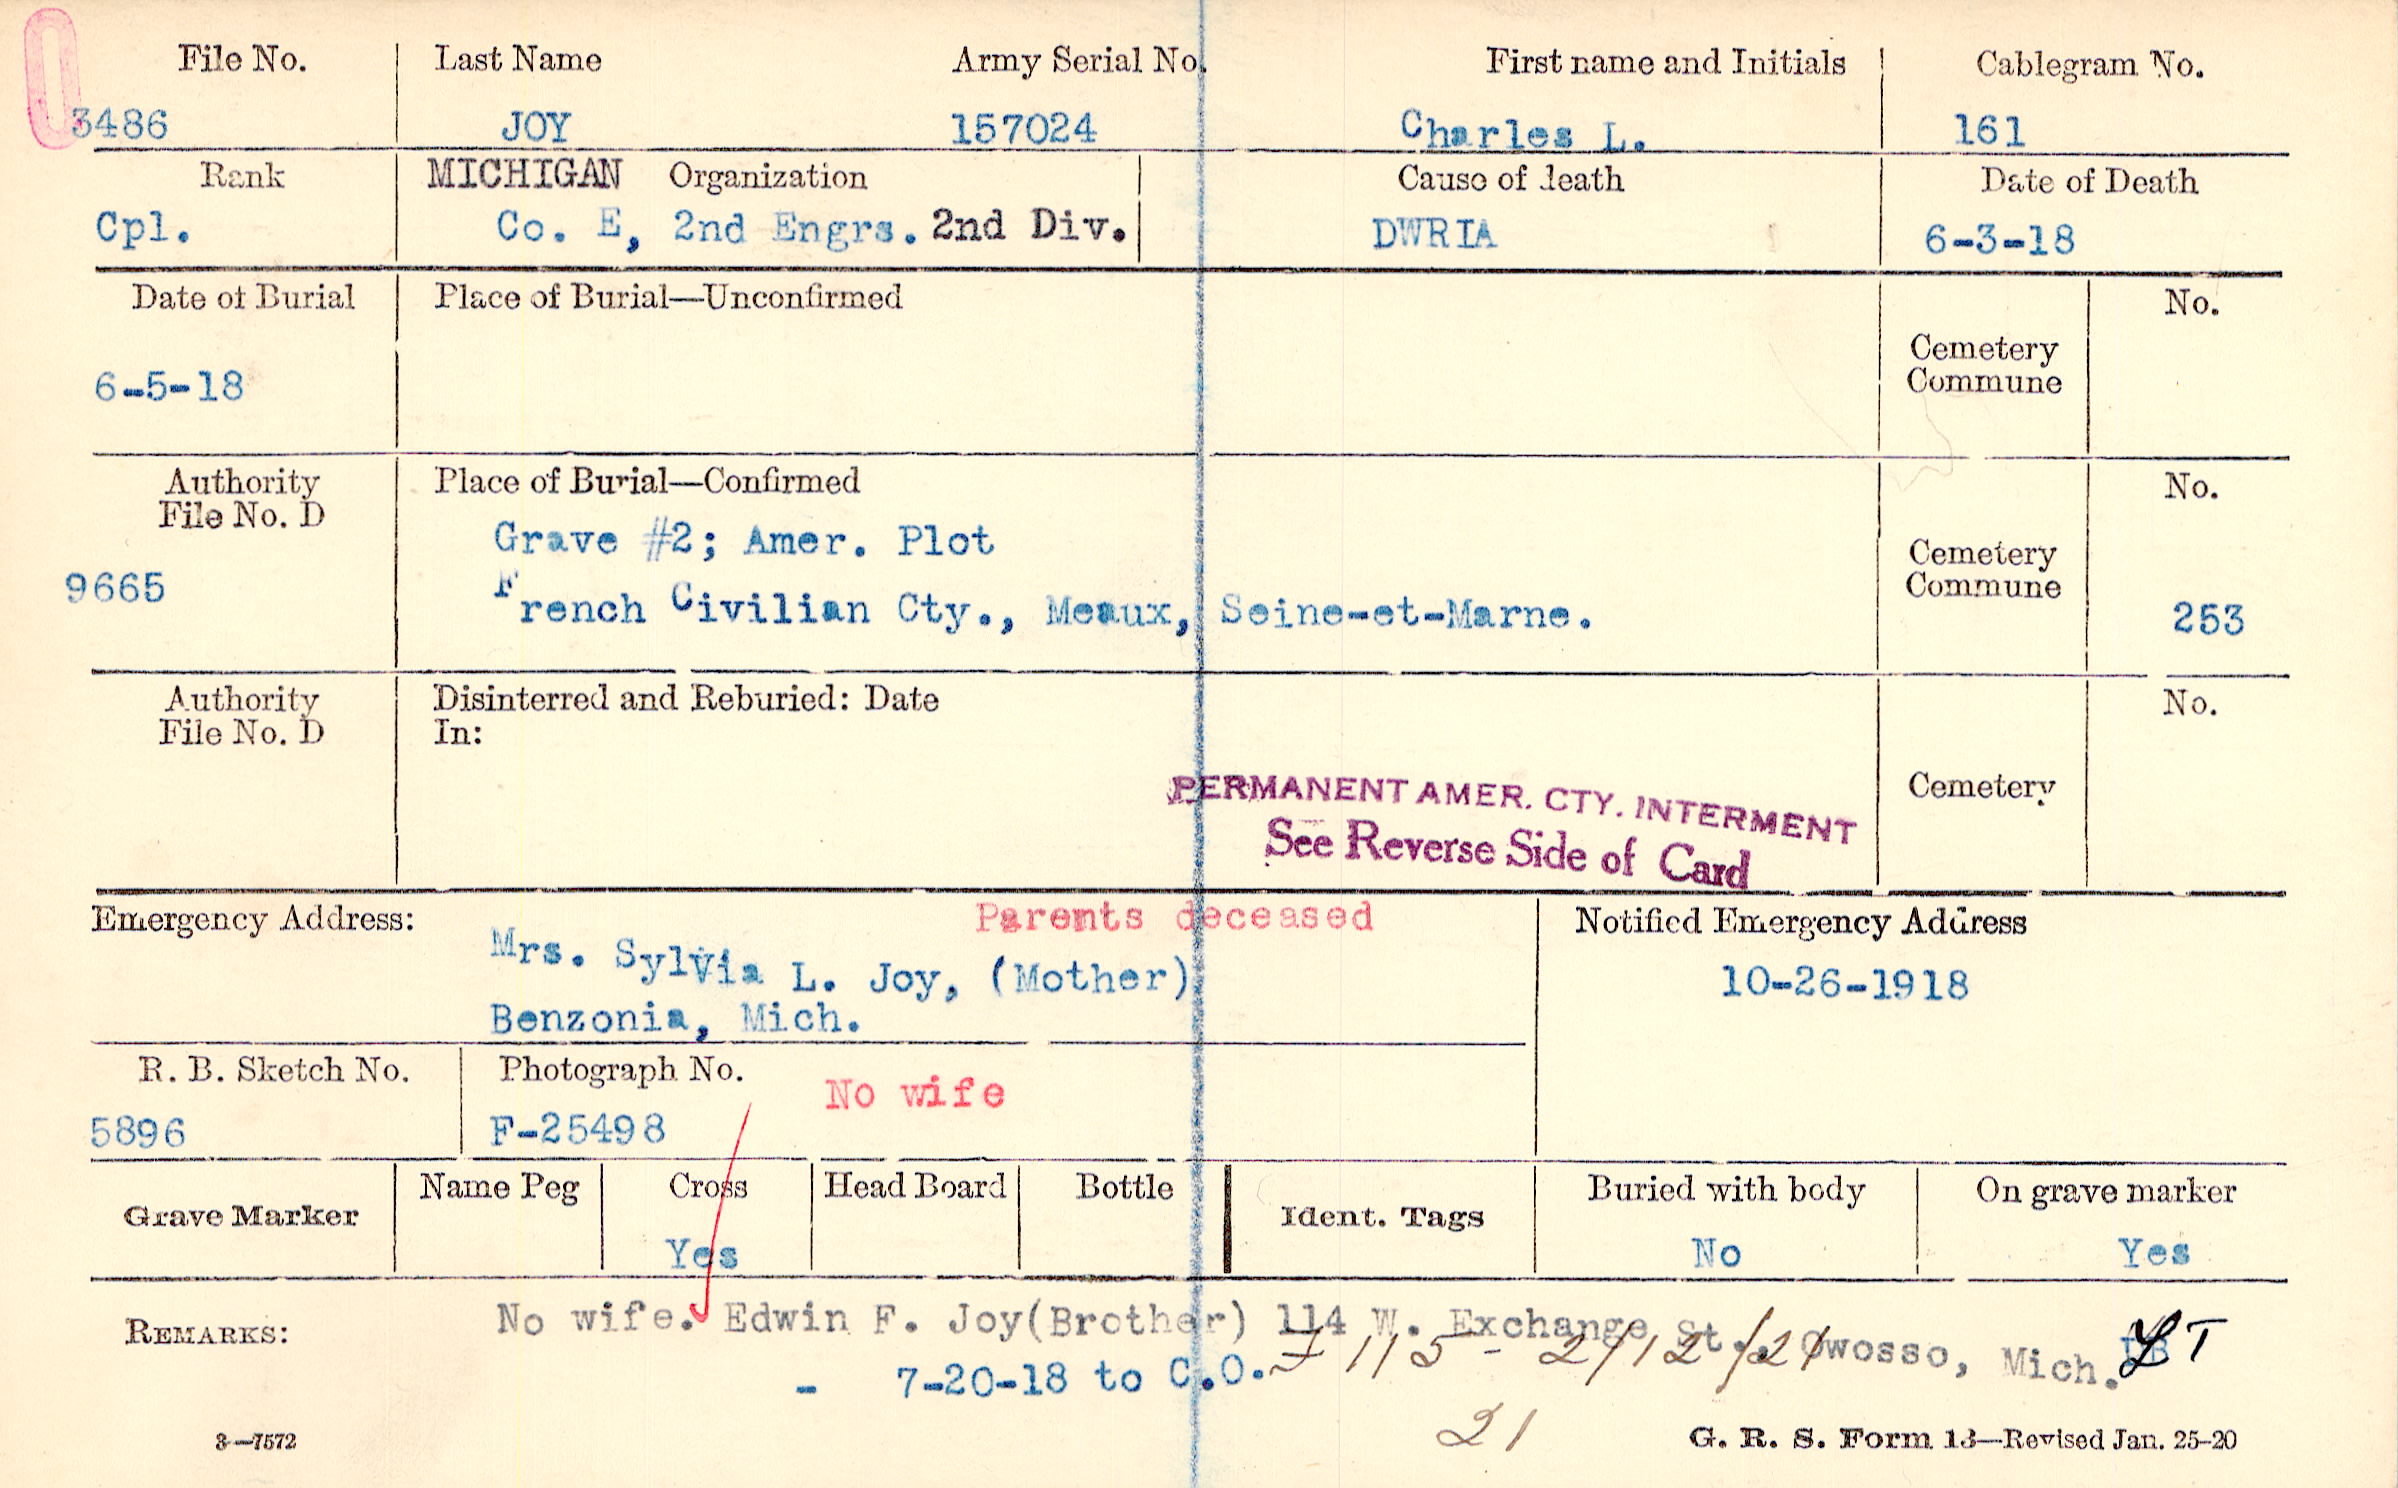 File No. Last Name Army Serial No. First name and Initials Cablegram No.
3486 JOY 157024 Charles L. 161
Rank MICHIGAN Organization Cause of death Date of Death
Cpl. Co. E, 2nd Engrs. 2nd Div. DWRIA 6-3-18
Date of Burial Place of Burial—Unconfirmed No.
Cemetery
Commune
6-5-18
Authority Place of Burial—Confirmed No.
File No. D
Grave #2; Amer. Plot
Cemetery
Commune
9665 French Civilian Cty., Meaux, Seine-et-Marne. 253
Authority Disinterred and Reburied: Date No.
File No. D In:
Cemetery
PERMANENT AMER. CTY. INTERMENT
See Reverse Side of Card
Emergency Address: Parents deceased Notified Emergency Address
Mrs. Sylvia L. Joy, (Mother) 10-26-1918
Benzonia, Mich.
R. B. Sketch No. Photograph No.
No wife
5896 F-25498
Grave Marker Name Peg Cross Head Board Bottle Ident. Tags Buried with body On grave marker
Yes No Yes
REMARKS: No wife. Edwin F. Joy(Brother) 114 W. Exchange St., Owosso, Mich.
- 7-20-18 to C.O. 115 - 2/12/21
21
3—7572 G. R. S. Form 13—Revised Jan. 25-20